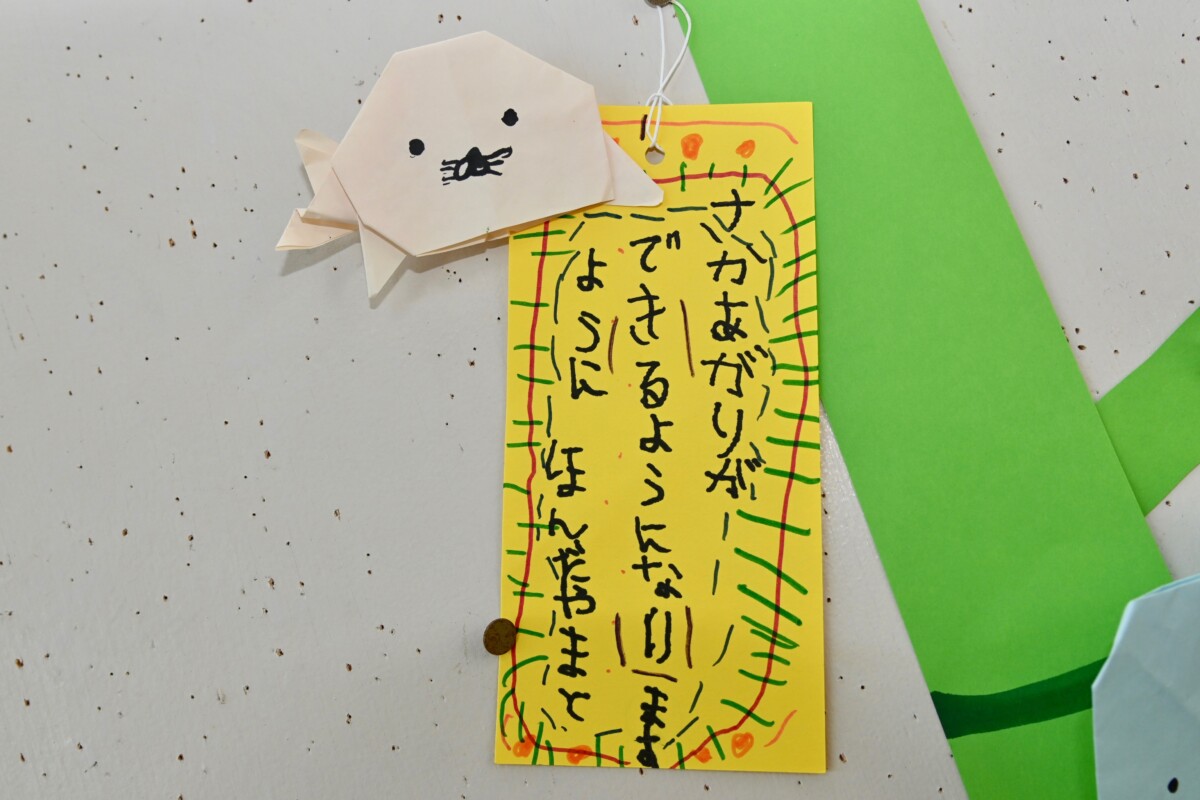 さかあがりが
できるようになります
ように ほんだやまと